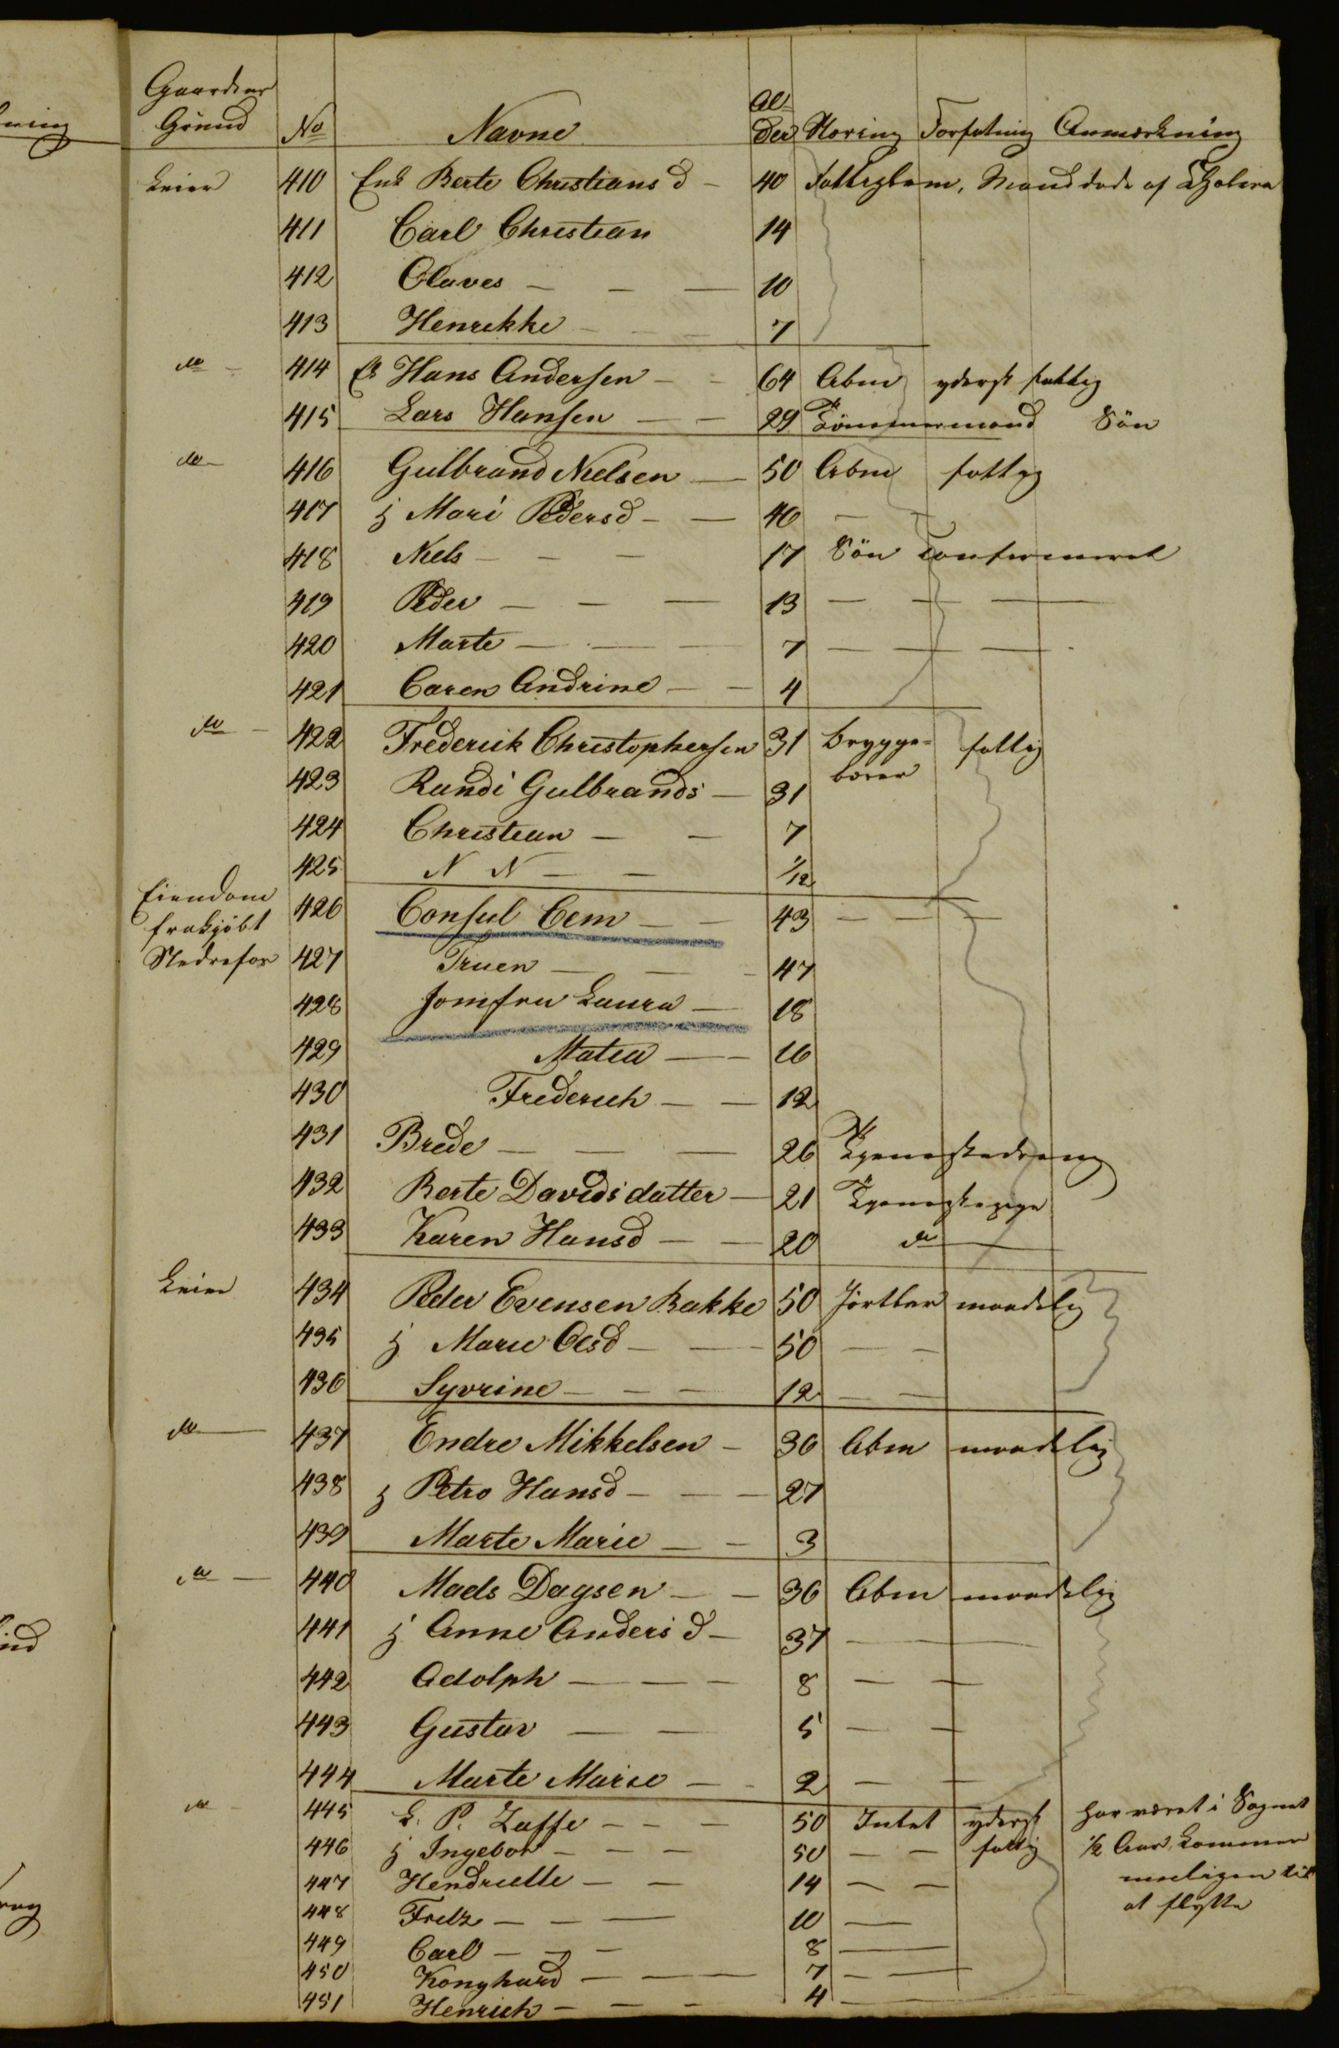 Gaardens
Grund No Navne Alder Næring Forfatning Anmærkning
Leier 410 Enk Berte Christiansd - 40 Fattiglem, Mand døde af Cholera
411 Carl Christian 14
412 Olaves - - - 10
413 Henrekke - - - 7
do - 414 Ek Hans Andersen - - 64 Abm yderst fattig
415 Lars Hansen - - 29 Tömmermand Sön
do - 416 Gulbrand Nielsen - 50 Abm fattig
417 Mari Pedersd - - 40 -
418 Niels - - - 17 Sön Confirmeret
419 Peder - - - 13 - - -
420 Marte - - - 7 - - -
421 Caren Andrine - - 4
do - 422 Frederik Christophersen 31 Brygge- fattig
423 Randi Gulbrands - 31 bærer
424 Christian - - 7
425 N N - - 1/12
Eiendom 426 Consul Cem - - 43 - - -
frakjöbt
Nedrefos 427 Fruen - - - 47
428 Jomfru Laura - 18
429 Matea - - 16
430 Frederich - - 12
431 Brede - - - 26 Tjenestedreng
432 Berte Davidsdatter - 21 Tjenestepige
433 Karen Hansd - - 20 do -
Leier 434 Peder Evensen Bakke 50 maadelig
435 Marie Olsd - - 50 - -
436 Syvrine - - - 12 - -
do - 437 Endre Mikkelsen - 36 Abm maadelig
438 Petro Hansd - - - 27
439 Marte Marie - - 3
do - 440 Mads Dagsen - - 36 Abm maadelig
441 Anne Andersd - 37 - -
442 Adolph - - - 8 - -
443 Gustav - - 5 - -
444 Marte Marie - - 2 - -
do - 445 L. P. Zaffe - - - 50 Intet yderst har været i Sognet
446 Ingebor - - - 50 - - fattig 1/2 Aar, kommer
447 Hendrielle - - 14 - - til
448 Fretz - - - 10 - at flytte
449 Carl - - - 8 -
450 Konghard - - - 7 - -
451 Henrich - - - 4 -